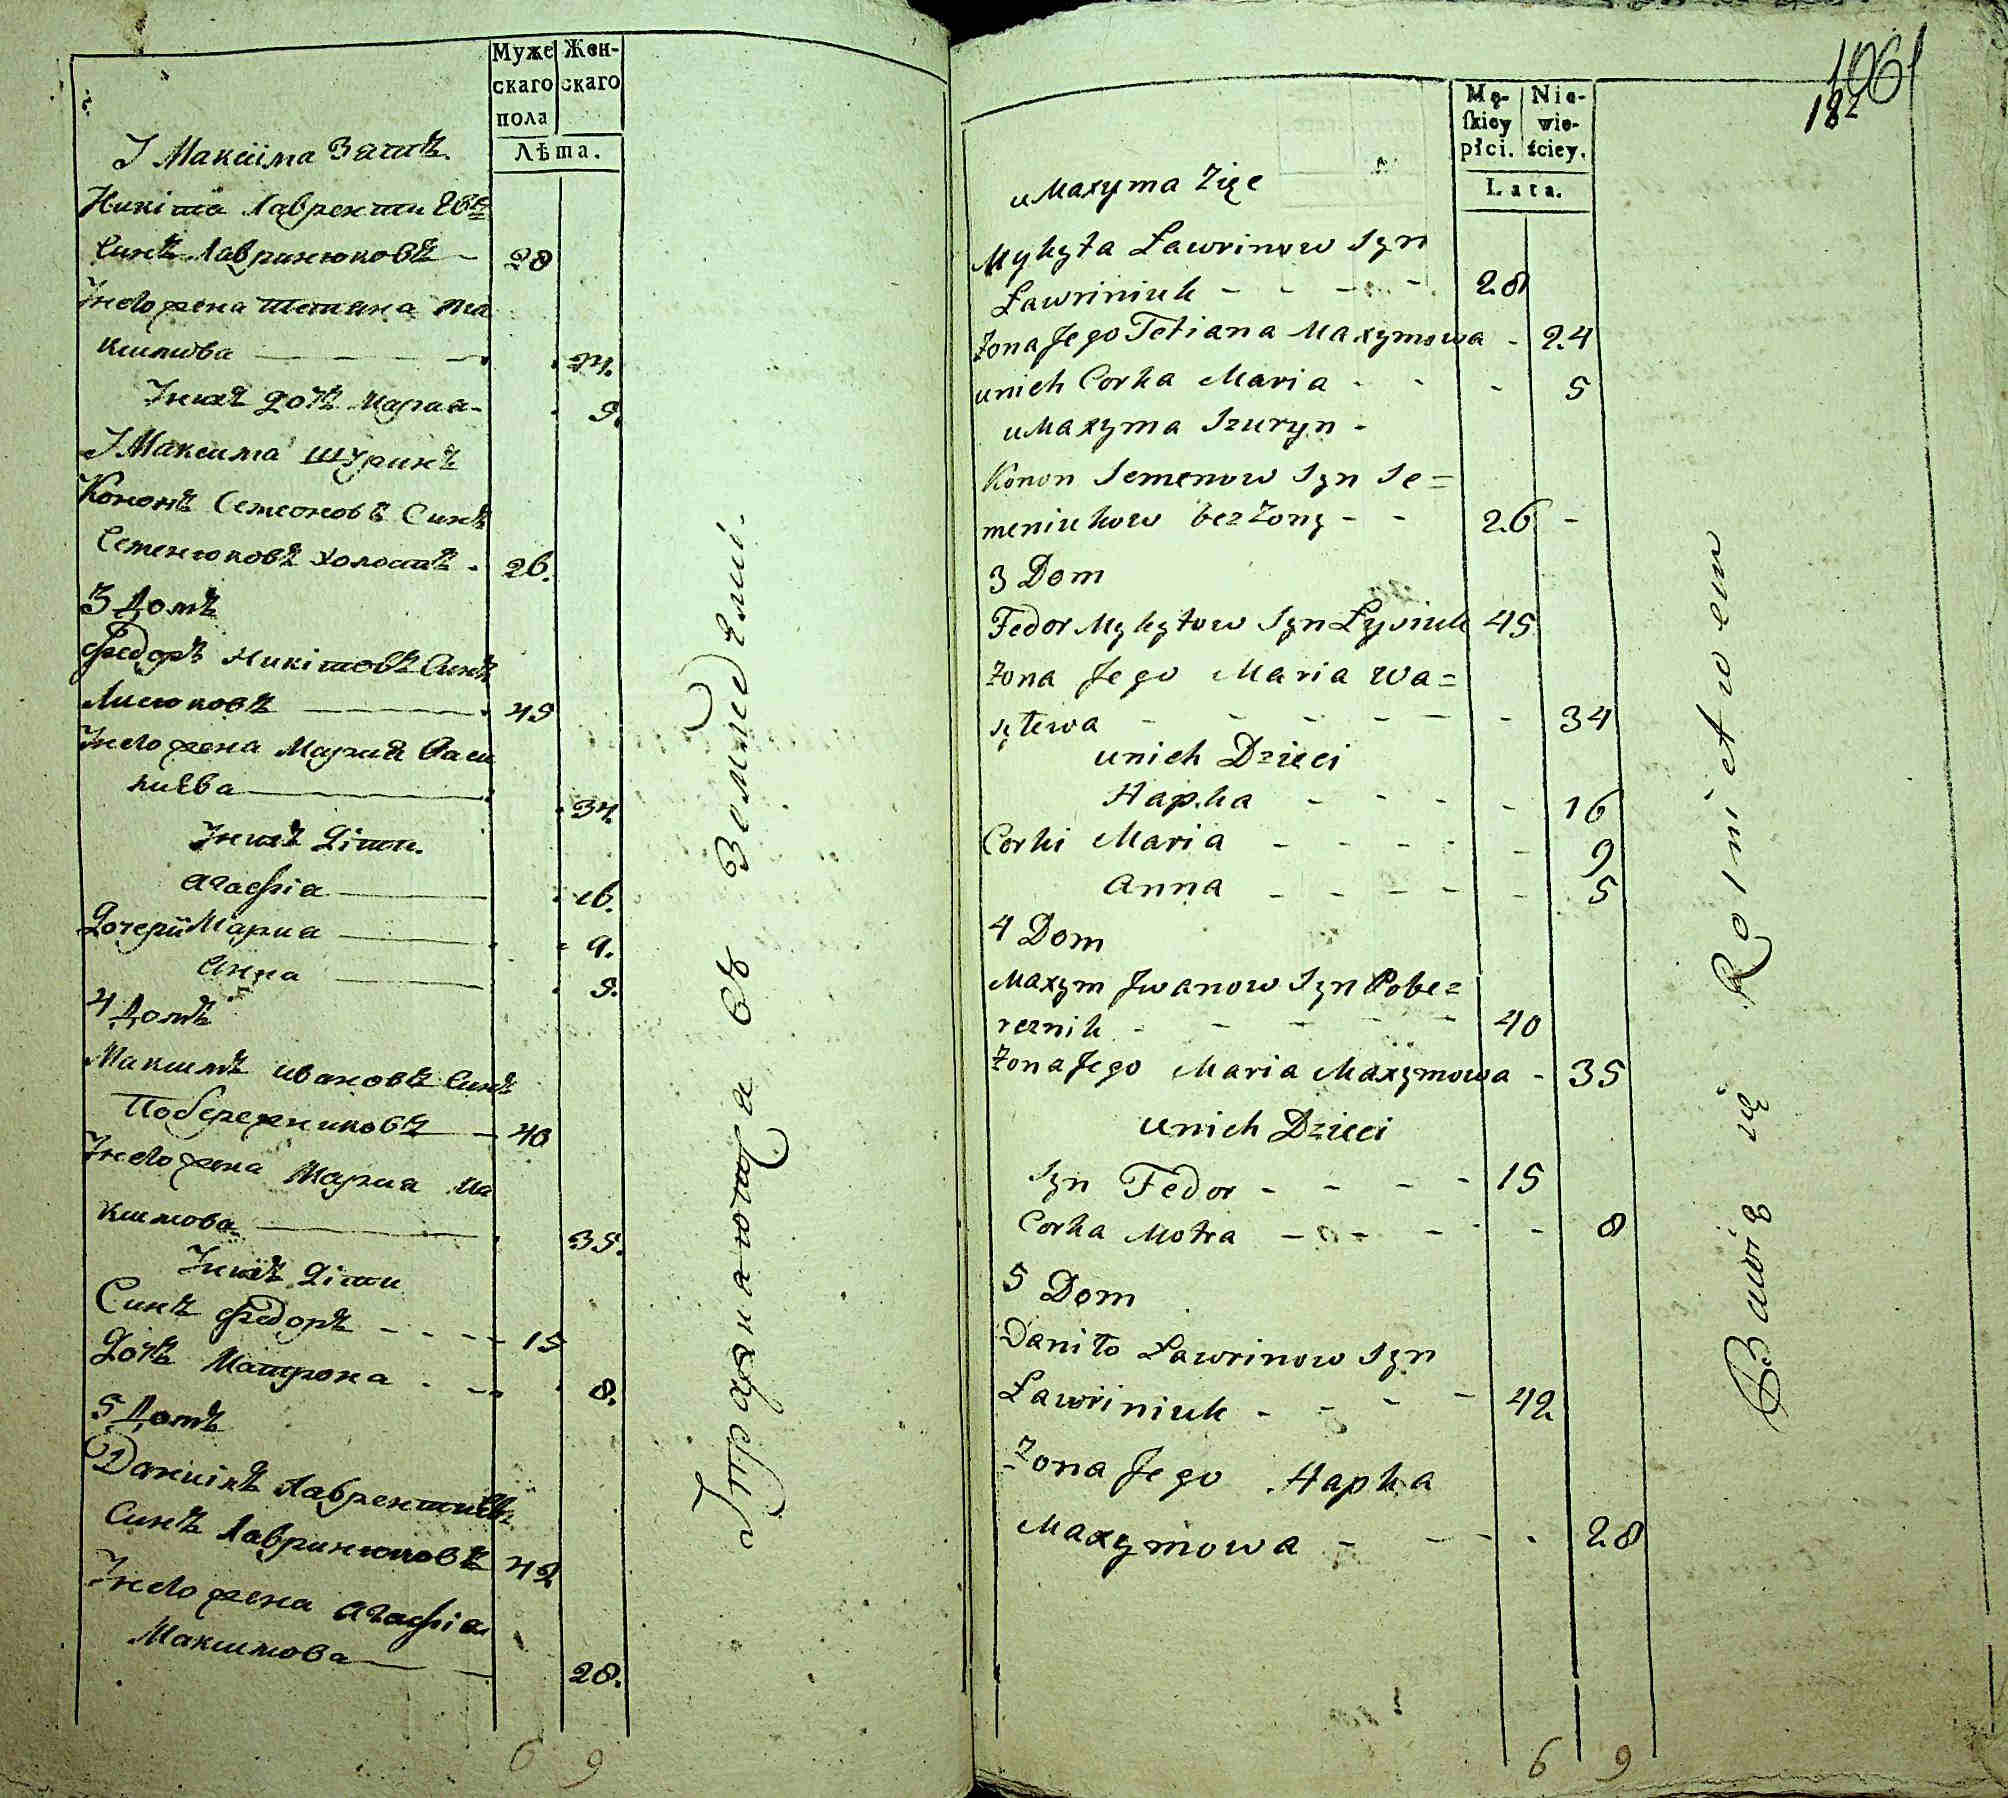 Муже
скаго
пола
Жен-
скаго
Лѣта.
У Максіма Зятъ
Никіта Лаврентиевъ
Синъ Лавринюковъ — 28
Унего жена Тетияна Ма
ксимова — 24.
Унихъ дочь Мариа - 5.
У Максима шуринъ
Кононъ Семеоновъ Синъ
Семенюковъ холостъ - 26.
3 Домъ
Федоръ Никітовъ Синъ
Лисюковъ — 45
Унего жена Мариа Васи
лиева — 34
Унихъ Діти.
Агафіа — 16.
Дочерїи Мариа — 9.
Анна — 5.
4 Домъ
Максимъ Ивановъ Синъ
Побережниковъ — 40
Унего жена Мариа Ма
ксимова — 35.
Унихъ Діти
Синъ Федоръ - - - - 15
Дочь Матрона - - 8.
5 Домъ
Даниїлъ Лаврентиевъ
Синъ Лавринюковъ 42
Унего жена Агафіа
Максимова — 28.
6 9
Упражняютца въ Земледелиі.
1061
182
Mę-
ſkiey
płci.
Nie-
wie-
ściey.
Lata.
u Maxyma Zięc
Mykyta Ławrinow Syn
Ławriniuk - - - - 28
Żona Jego Tetiana Maxymowa - 24
unich Corka Maria - - - 5
u Maxyma Szuryn -
Konon Semenow Syn Se=
meniukow bez Żony - - 26 -
3 Dom
Fedor Mykytow Syn Łysiuk 45
Żona Jego Maria Wa=
sylewa - - - - - - 34
unich Dzieci
Hapka - - - - 16
Corki Maria - - - - - 9
Anna - - - - - 5
4 Dom
Maxym Jwanow Syn Pobe=
reznik - - - - - 40
Żona Jego Maria Maxymowa - 35
unich Dzieci
Syn Fedor - - - - 15
Corka Motra - - - - - - 8
5 Dom
Daniło Ławrinow Syn
Ławriniuk - - - - 42
Żona Jego Hapka
Maxymowa - - - 28
6 9
Bawią się Rolnictwem